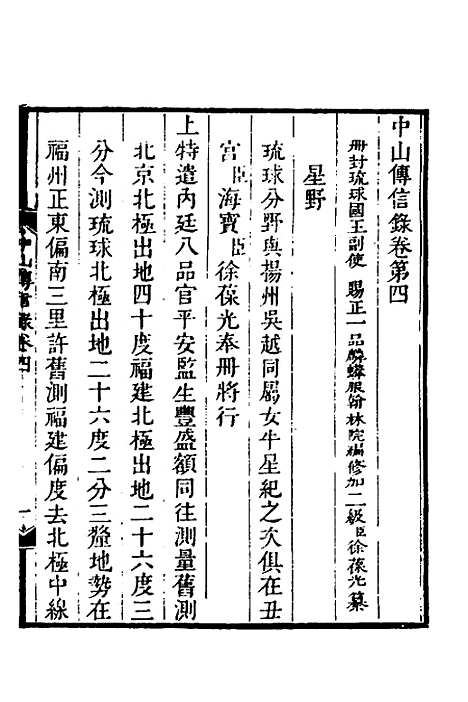 中山傳信錄卷第四
冊封琉球國王副使　賜正一品麟蟒服翰林院編修加二級臣徐葆光纂
星野
琉球分野與揚州吳越同屬女牛星紀之次俱在丑
宮臣海寶臣徐葆光奉冊將行
上特遣內廷八品官平安監生豐盛額同往測量舊測
北京北極出地四十度福建北極出地二十六度三
分今測琉球北極出地二十六度二分三釐地勢在
福州正東偏南三里許舊測福建偏度去北極中線
中山傳信錄卷四
一